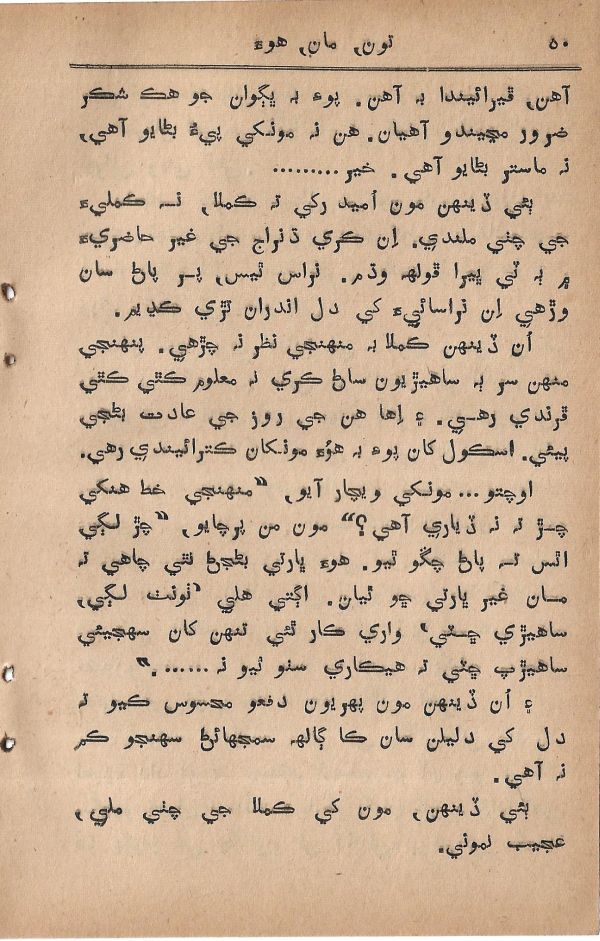 ٥٠ تون, مان, هوءَ
آهن, ڦيرائيندا بہ آهن. پوءِ بہ ڀڳوان جو هڪ شڪر
ضرور مڃيندو آهيان. هن نہ مونکي پيءُ بڻايو آهي,
نہ ماستر بڻايو آهي. خير.........
ٻئي ڏينهن مون اُميد رکي تہ ڪملا, نہ ڪمليءَ
جي چٺي ملندي. اِن ڪري ڌنراج جي غير حاضريءَ
۾ ٻہ ٽي ڀيرا ڦولهہ وڌم. نراس ٿيس, پر پاڻ سان
وڙهي اِن نراسائيءَ کي دل اندران تڙي ڪڍيم.
اُن ڏينهن ڪملا بہ منهنجي نظر نہ چڙهي. پنهنجي
منهن سر ٻہ ساهيڙيون ساڻ ڪري نہ معلوم ڪٿي ڪٿي
ڦرندي رهي. ۽ اِها هن جي روز جي عادت بڻجي
پيئي. اسڪول کان پوءِ بہ هوُءَ مونکان ڪترائيندي رهي.
اوچتو... مونکي ويچار آيو, ”منهنجي خط هنکي
چڙ تہ نہ ڏياري آهي؟“ مون من پرچايو, ”چڙ لڳي
اٿس تہ پاڻ چڱو ٿيو. هوءَ ڀارتي بڻجڻ نٿي چاهي تہ
مان غير ڀارتي ڇو ٿيان. اڳتي هلي ’ٽوئٽ لڳي,
ساهيڙي ڇٽي‘ واري ڪار ٿئي تنهن کان سهجيئي
ساهيڙپ ڇٽي تہ هيڪاري سٺو ٿيو نہ.......“
۽ اُن ڏينهن مون پهريون دفعو محسوس ڪيو تہ
دل کي دليلن سان ڪا ڳالهہ سمجهائڻ سهنجو ڪم
نہ آهي.
ٻئي ڏينهن, مون کي ڪملا جي چٺي ملي,
عجيب نموني.